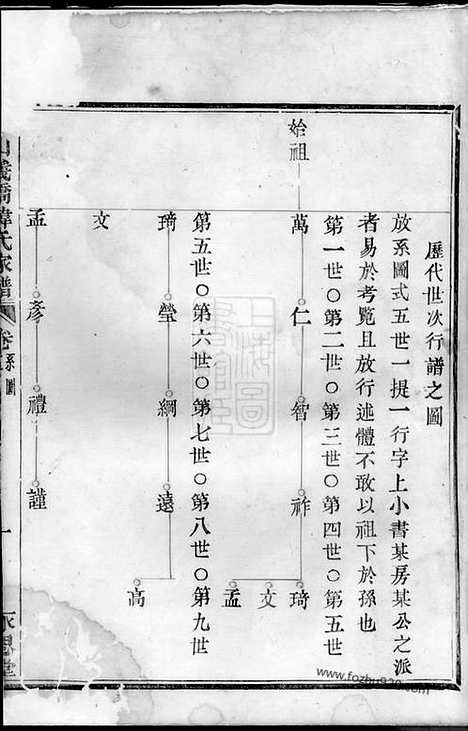 歷代世次行譜之圖
放系圖式五世一提一行字上小書某房某公之派
者易於考覽且放行述體不敢以祖下於孫也
第一世○第二世○第三世○第四世○第五世
始祖
萬 仁 智 祚 琦
文
孟
第五世○第六世○第七世○第八世○第九世
琦 瑩 綱 遠
高
文
孟 彥 禮 謹
氏家譜 卷 系圖 一 永思堂
www.fozhu920.com